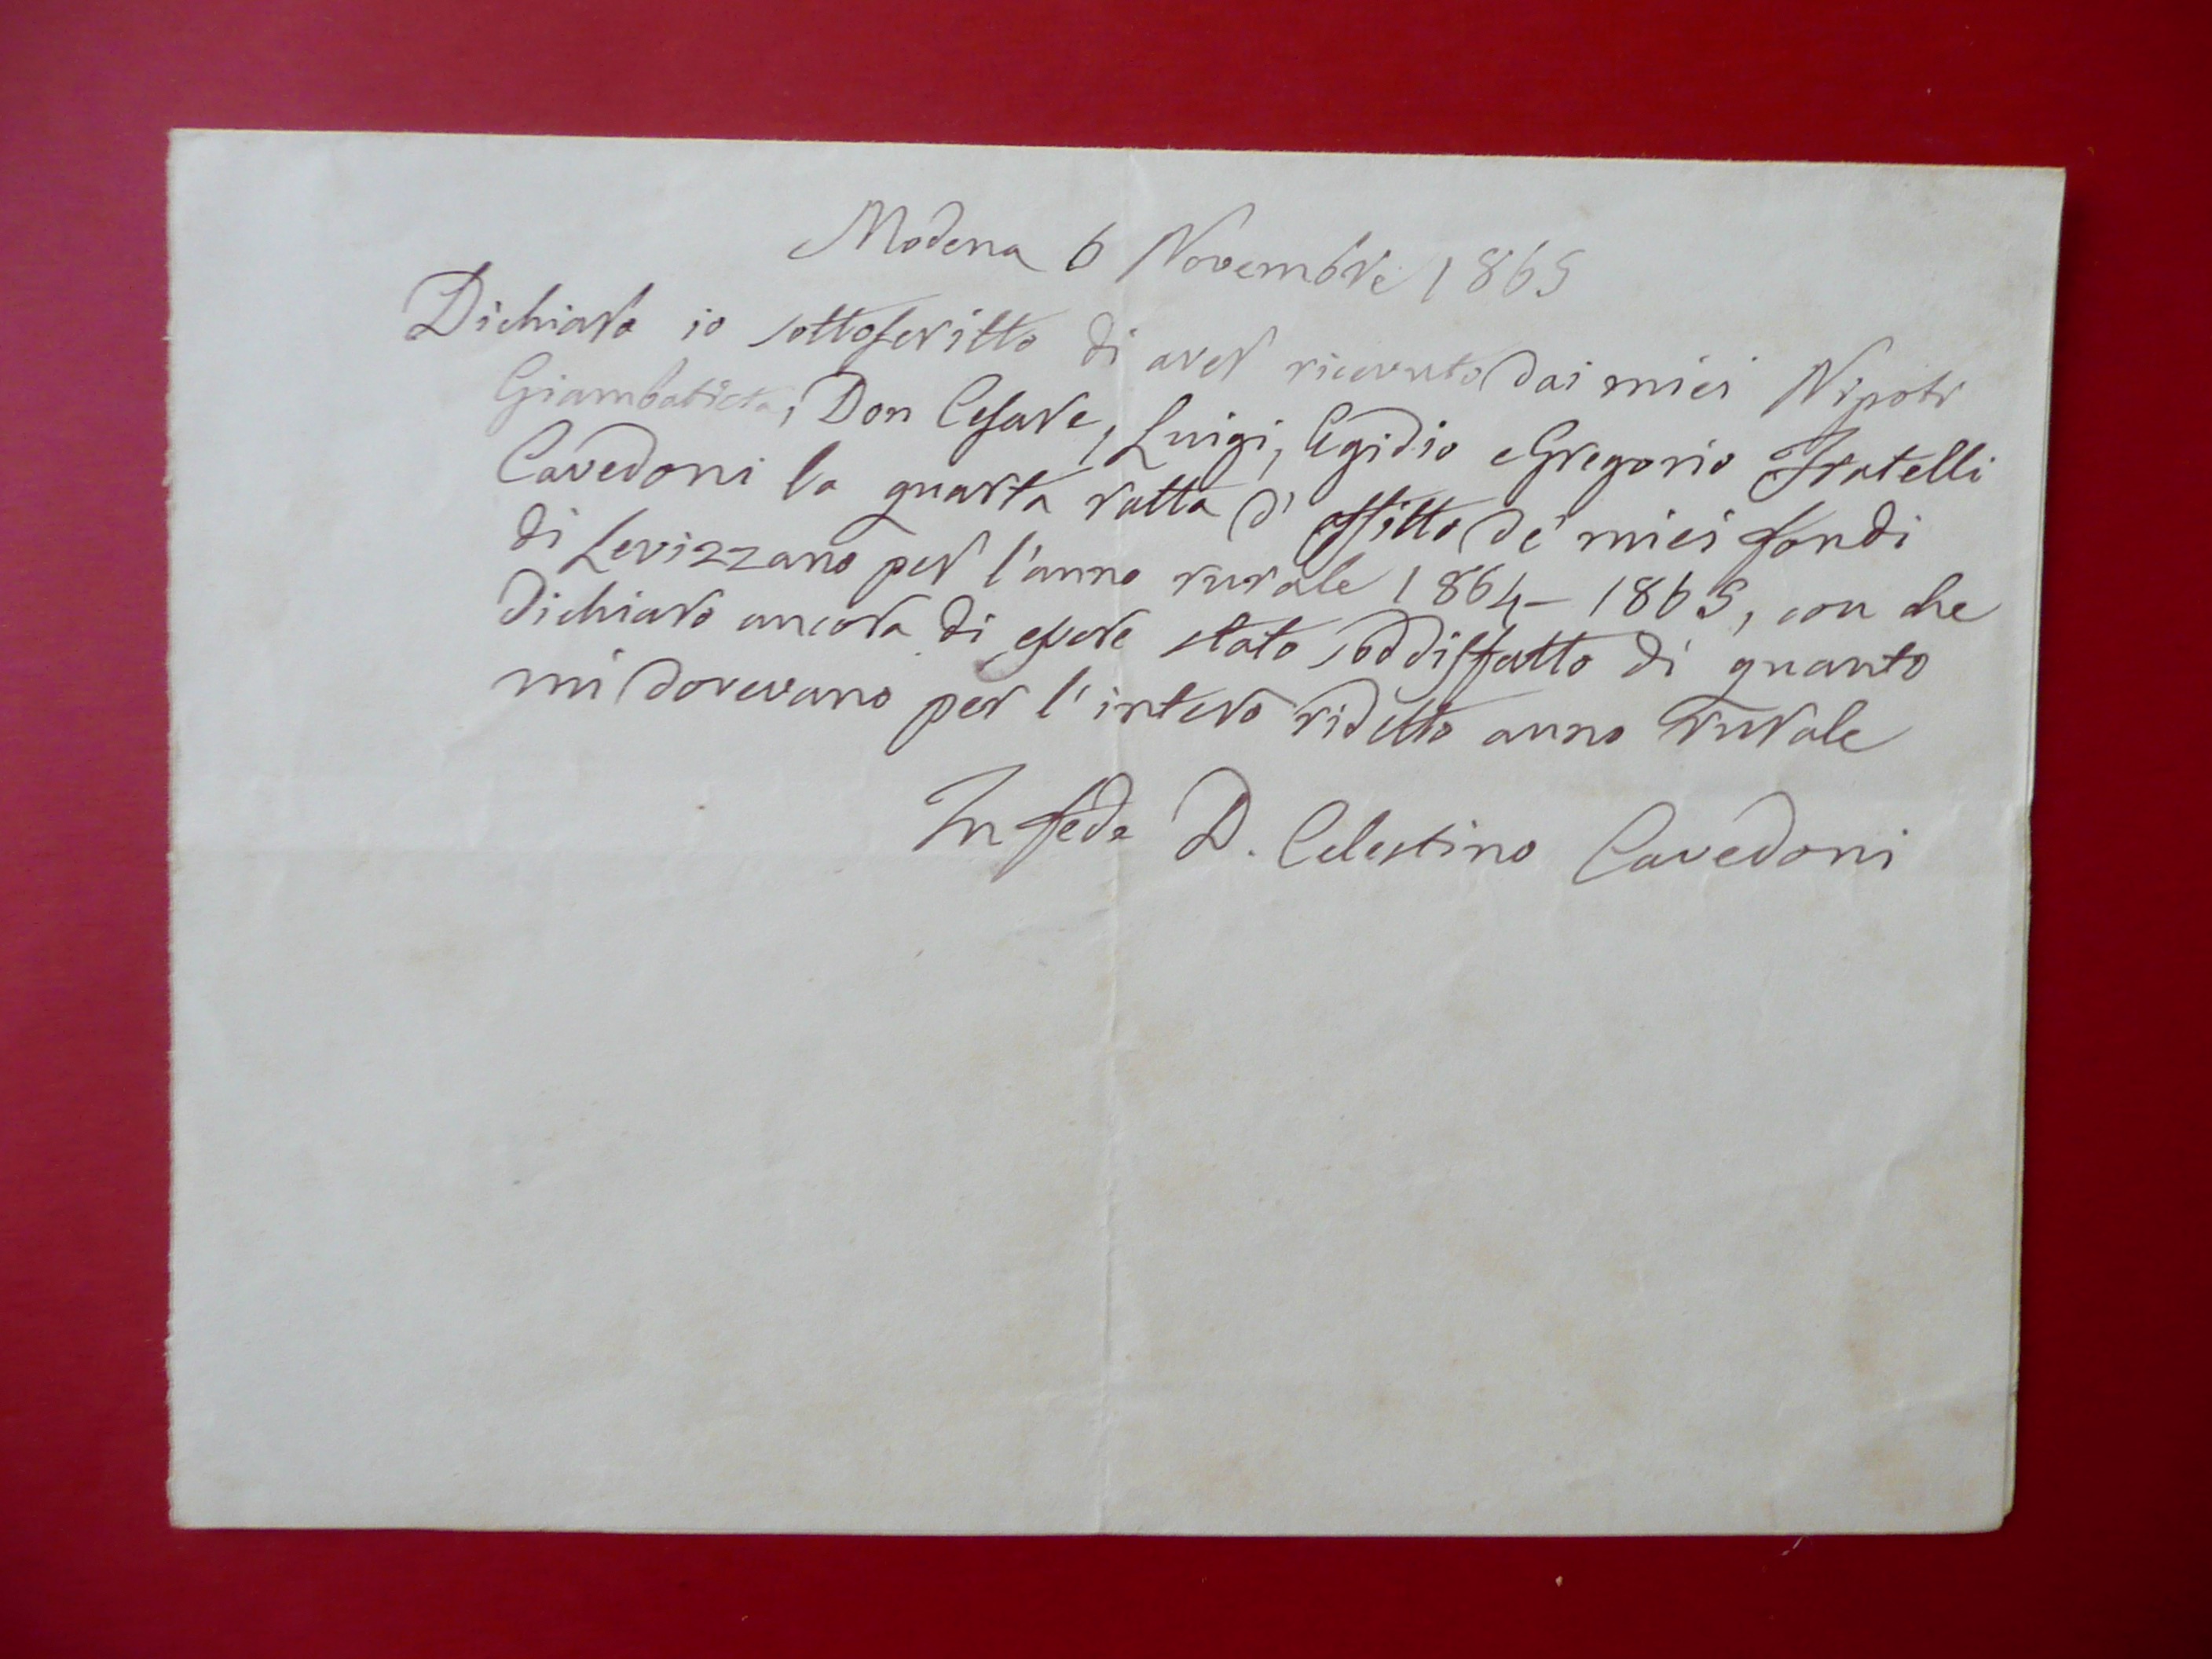 Modena 6 Novembre 1865
Dichiaro io sottoscritto di aver ricevuto dai miei Nipoti
Giambatista, Don Cesare, Luigi, Egidio e Gregorio Fratelli
Cavedoni la quarta ratta d'affitto de' miei fondi
di Levizzano per l'anno rurale 1864-1865, con che
dichiaro ancora di essere stato soddisfatto di quanto
mi dovevano per l'intero ridetto anno rurale
In fede D. Celestino Cavedoni